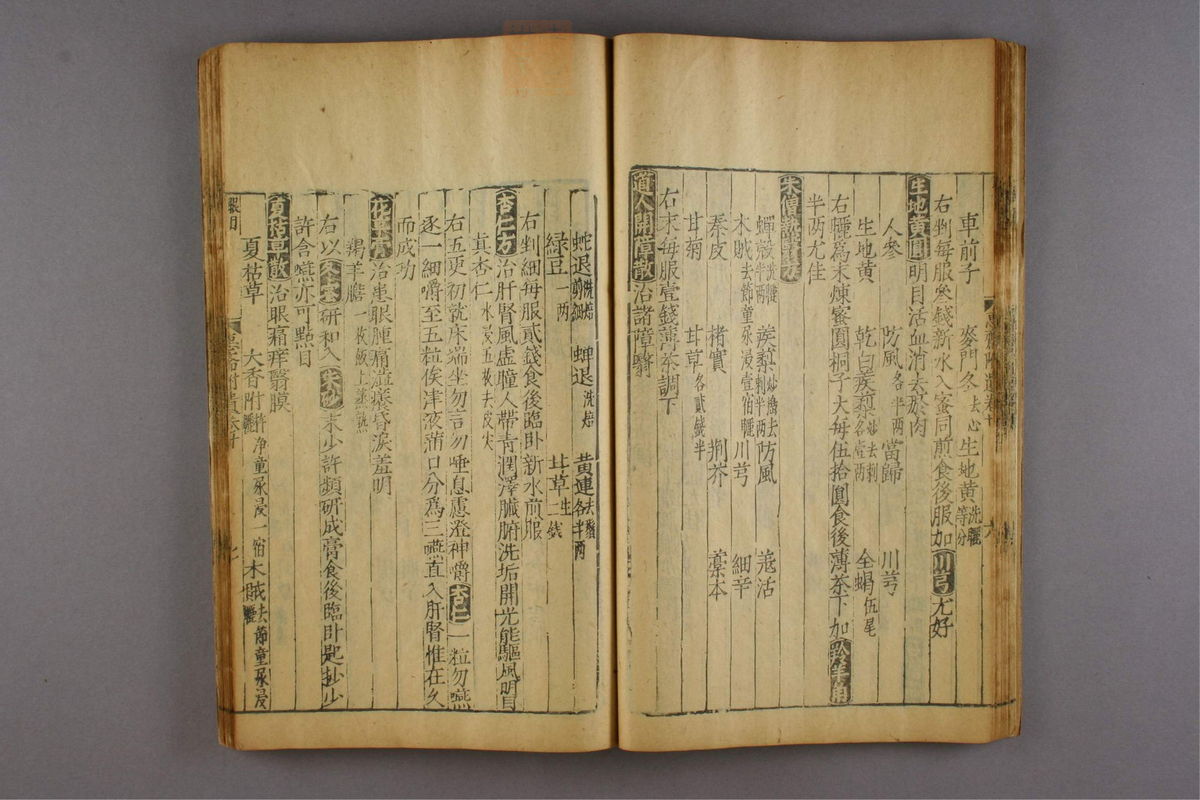 車前子 麥門冬去心 生地黃洗曬等分
右剉每服叄錢新水入蜜同煎食後服加川芎尤好
生地黃圓明目活血消去瘀肉
人參 防風各半兩 當歸 川芎
生地黃 乾白蒺蔾炒去刺各壹兩 全蝎伍尾
右曬爲末煉蜜圓桐子大每伍拾圓食後薄茶下加羚羊角
半两尤佳
蟬殼洗曬半两 蒺蔾炒擣去刺半两 防風 羗活
木賊去節童尿浸壹宿曬 川芎 細辛
秦皮 楮實 荆芥 藁本
甘菊 甘草各貳錢半
右末每服壹錢薄茶調下
道人開障散治諸障翳
蛇退洗焙剪細 蟬退洗焙 黃連去鬚各半两
綠豆一两 甘草生二錢
右剉細每服貳錢食後臨卧新水煎服
杏仁方治肝腎風虛瞳人帶青潤澤臟腑洗垢開光能驅風明目
真杏仁水浸五枚去皮尖
右五更初就床端坐勿言勿唾息慮澄神嚼杏仁一粒勿嚥
逐一細嚼至五粒俟津液滿口分爲三嚥直入肝腎惟在久
而成功
治患眼腫痛澁癢昏淚羞明
羯羊膽一枚飯上蒸熟
右以研和入朱砂末少許頻研成膏食後臨卧匙抄少
許含嚥亦可點目
夏枯草散治眼痛痒翳膜
夏枯草 大香附杵净童尿浸一宿曬 木賊去節童尿浸曬
眼目